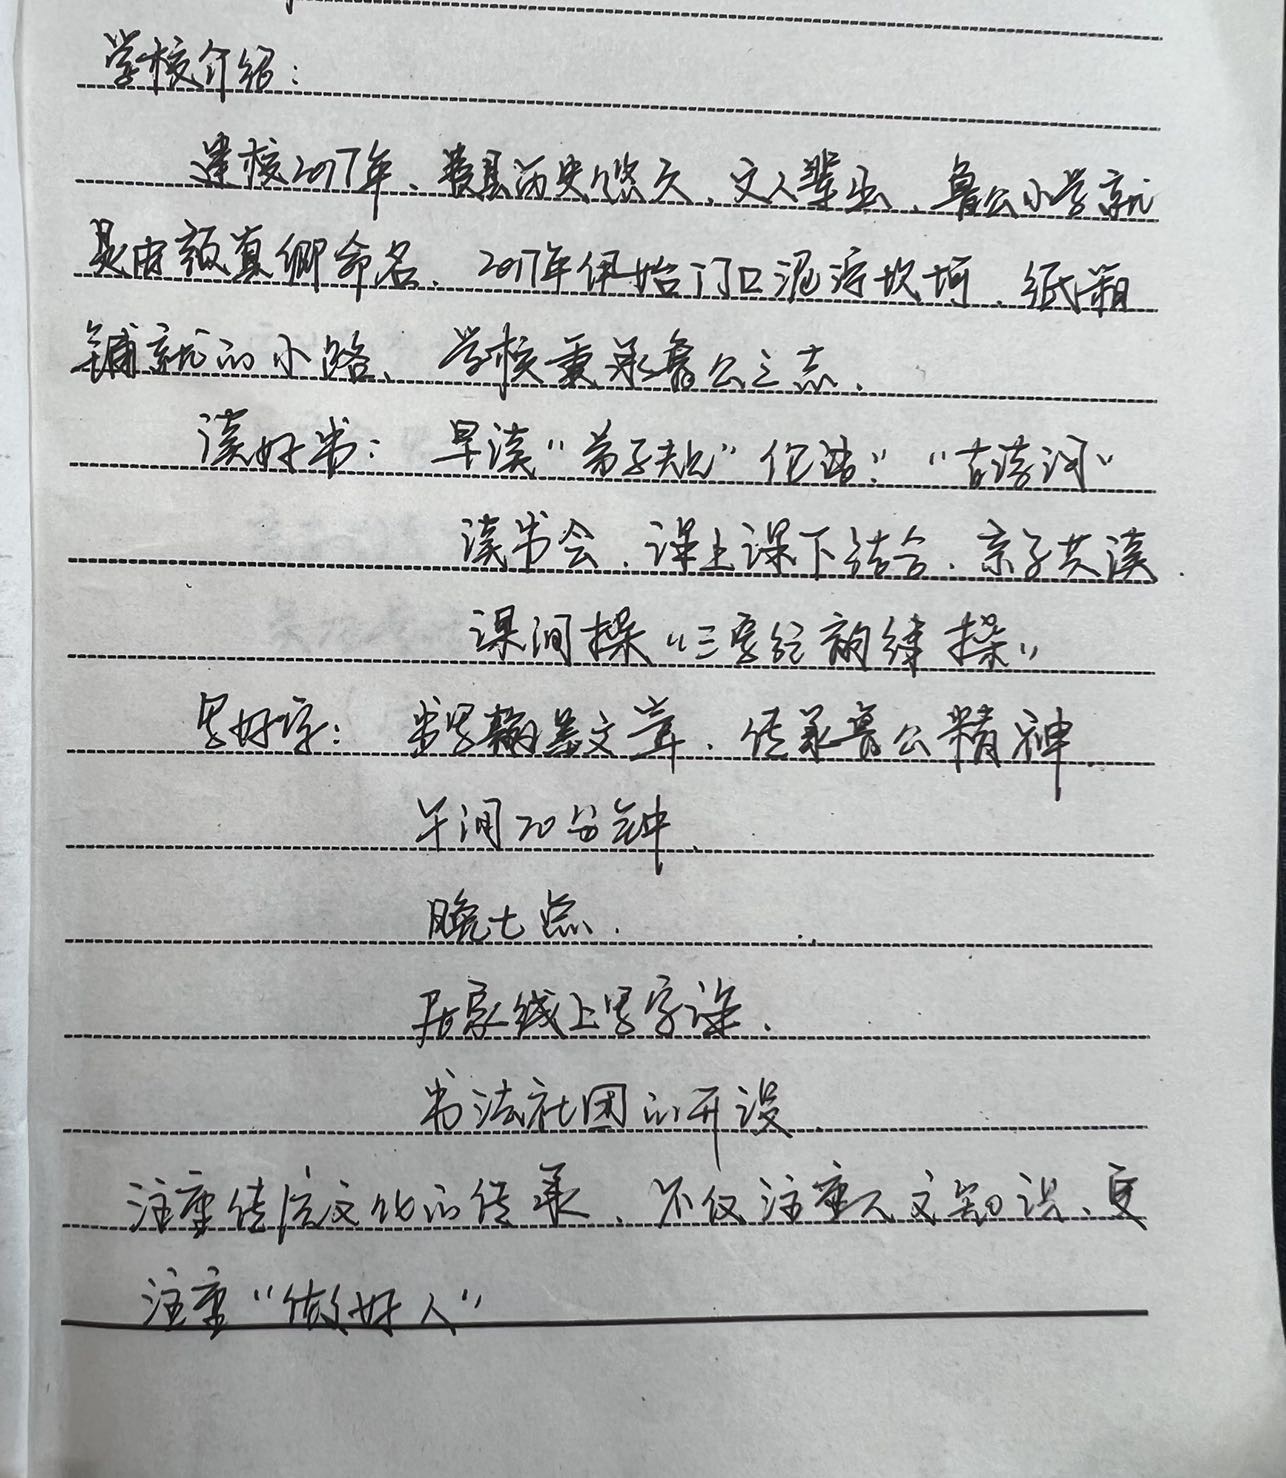 学校介绍：
建校2017年、费县历史悠久、文人辈出、鲁公小学就
是由颜真卿命名、2017年伊始门口泥泞坎坷、纸箱
铺就的小路、学校秉承鲁公之志、
读好书： 早读“弟子规” “古诗词”
读书会、课上课下结合、亲子共读.
课间操“三字经韵律操”
写好字： 书写翰墨文章、传承鲁公精神.
午间20分钟.
晚七点.
居家线上写字课.
书法社团的开设.
注重传统文化的传承、不仅注重人文知识、更
注重“做好人”